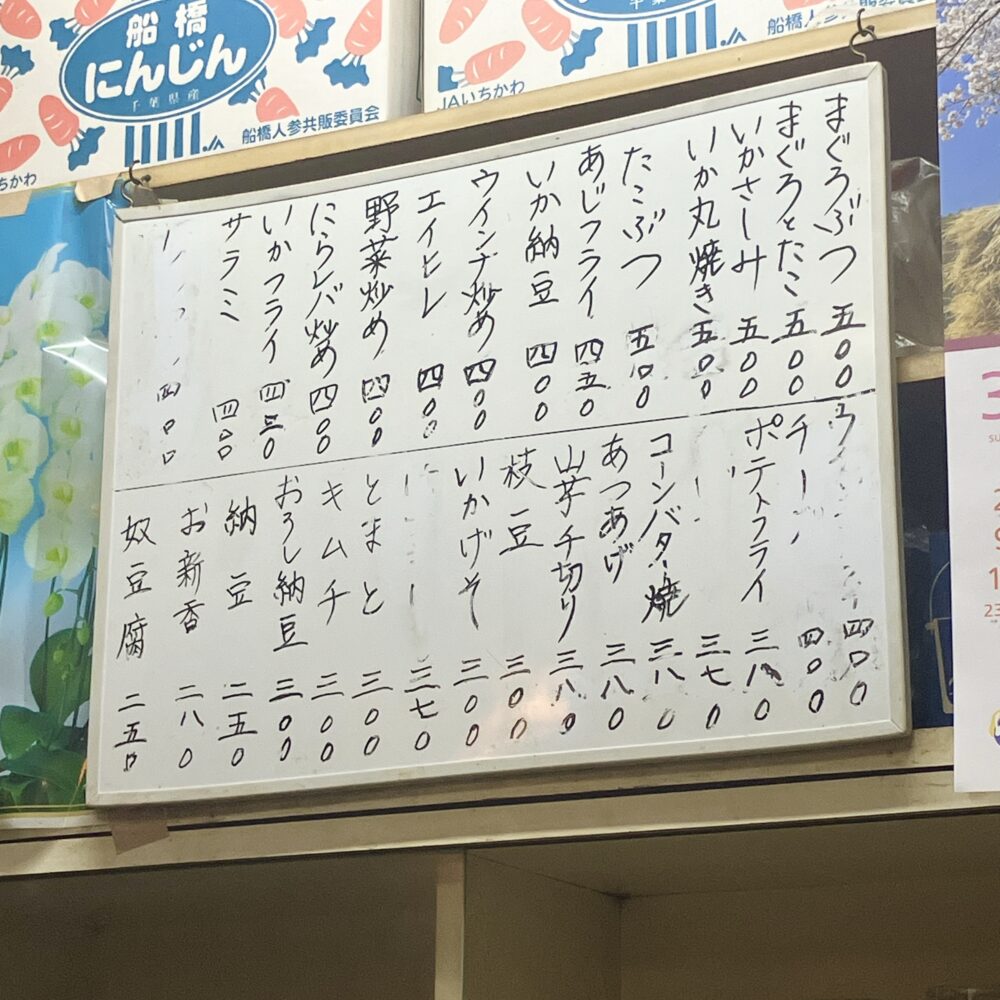 船橋
にんじん
千葉県産
船橋人参共販委員会
JAいちかわ
船橋人参共販委員会
ちかわ
まぐろぶつ 五〇〇
まぐろとたこ 五〇〇
いかさしみ 五〇〇
いか丸焼き 五〇〇
たこぶつ 五〇〇
あじフライ 四五〇
いか納豆 四〇〇
ウインナ炒め 四〇〇
エイヒレ 四〇〇
野菜炒め 四〇〇
にらレバ炒め 四〇〇
いかフライ 四三〇
サラミ 四〇〇
四〇〇
四〇〇
四〇〇
ポテトフライ 三八〇
三七〇
コーンバター焼 三八〇
あつあげ 三八〇
山芋千切り 三八〇
枝豆 三〇〇
いかげそ 三〇〇
三七〇
とまと 三〇〇
キムチ 三〇〇
おろし納豆 三〇〇
納豆 二五〇
お新香 二八〇
奴豆腐 二五〇